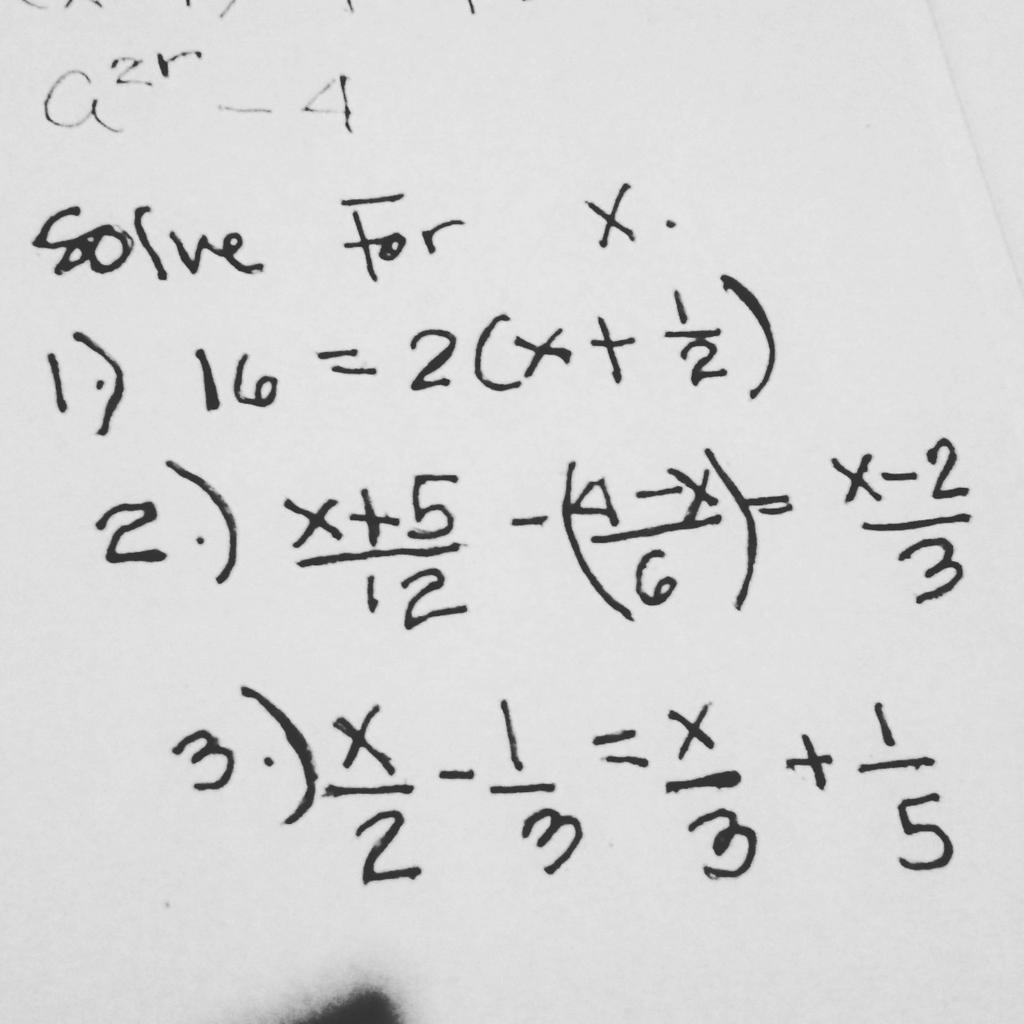 a^{2r} - 4
Solve For x.
1.) 16 = 2(x + 1/2)
2.) (x+5)/12 - ((4-x)/6) = (x-2)/3
3.) x/2 - 1/3 = x/3 + 1/5